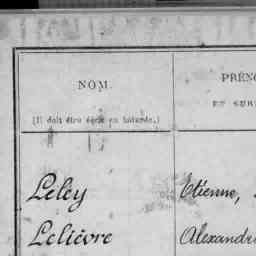 NOM. PRÉNO
(Il doit être écrit en bâtarde.) ET SUR
Leley Etienne,
Lelièvre Alexandre